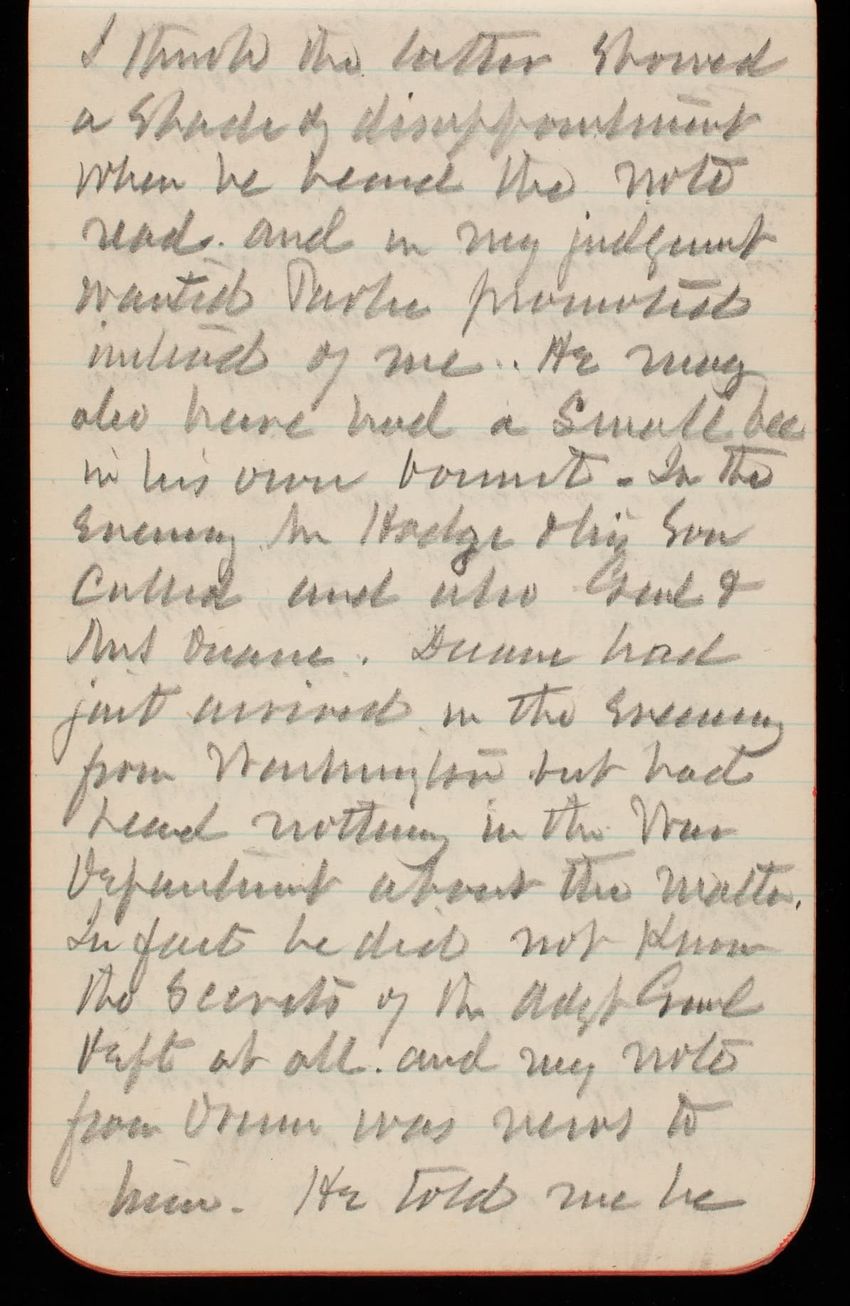 I think the latter showed
a shade of disappointment
when he heard the note
read. and in my judgment
wanted Parke promoted
instead of me.. He may
also have had a small bee
in his own bonnet. In the
evening Mr Hodge & his son
called and also Genl &
Mrs Duane. Duane had
just arrived in the evening
from Washington but had
heard nothing in the War
Department about the matter.
In fact he did not know
the secrets of the Adgt Genl
Dept at all. and my note
from Drum was news to
him. He told me he